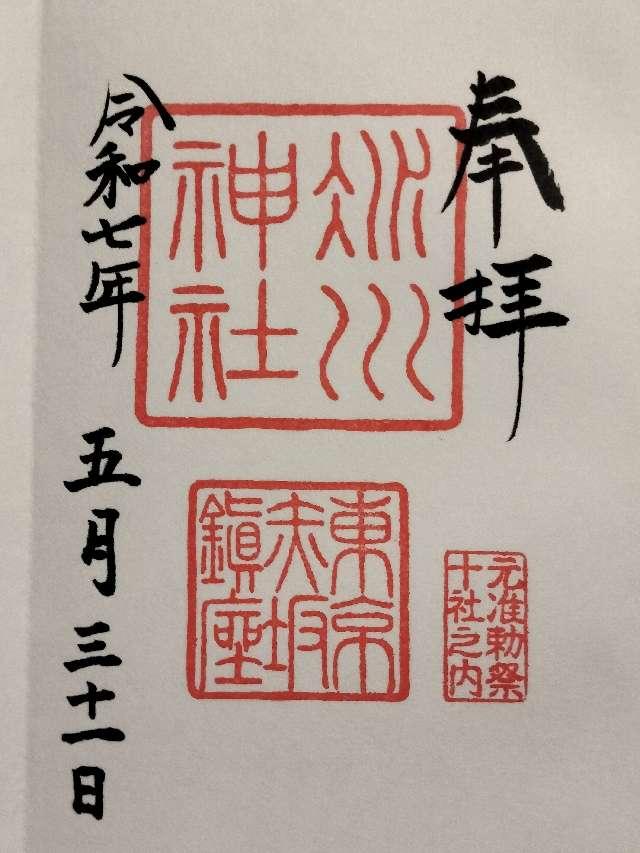 奉拝
氷川
神社
東京
赤坂
鎮座
元准勅祭
十社之内
令和七年 五月三十一日